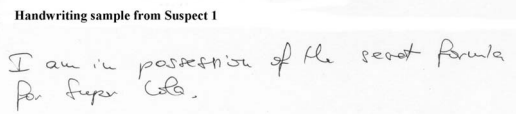 Handwriting sample from Suspect 1
I am in possession of the secret formula
for Super Cola.